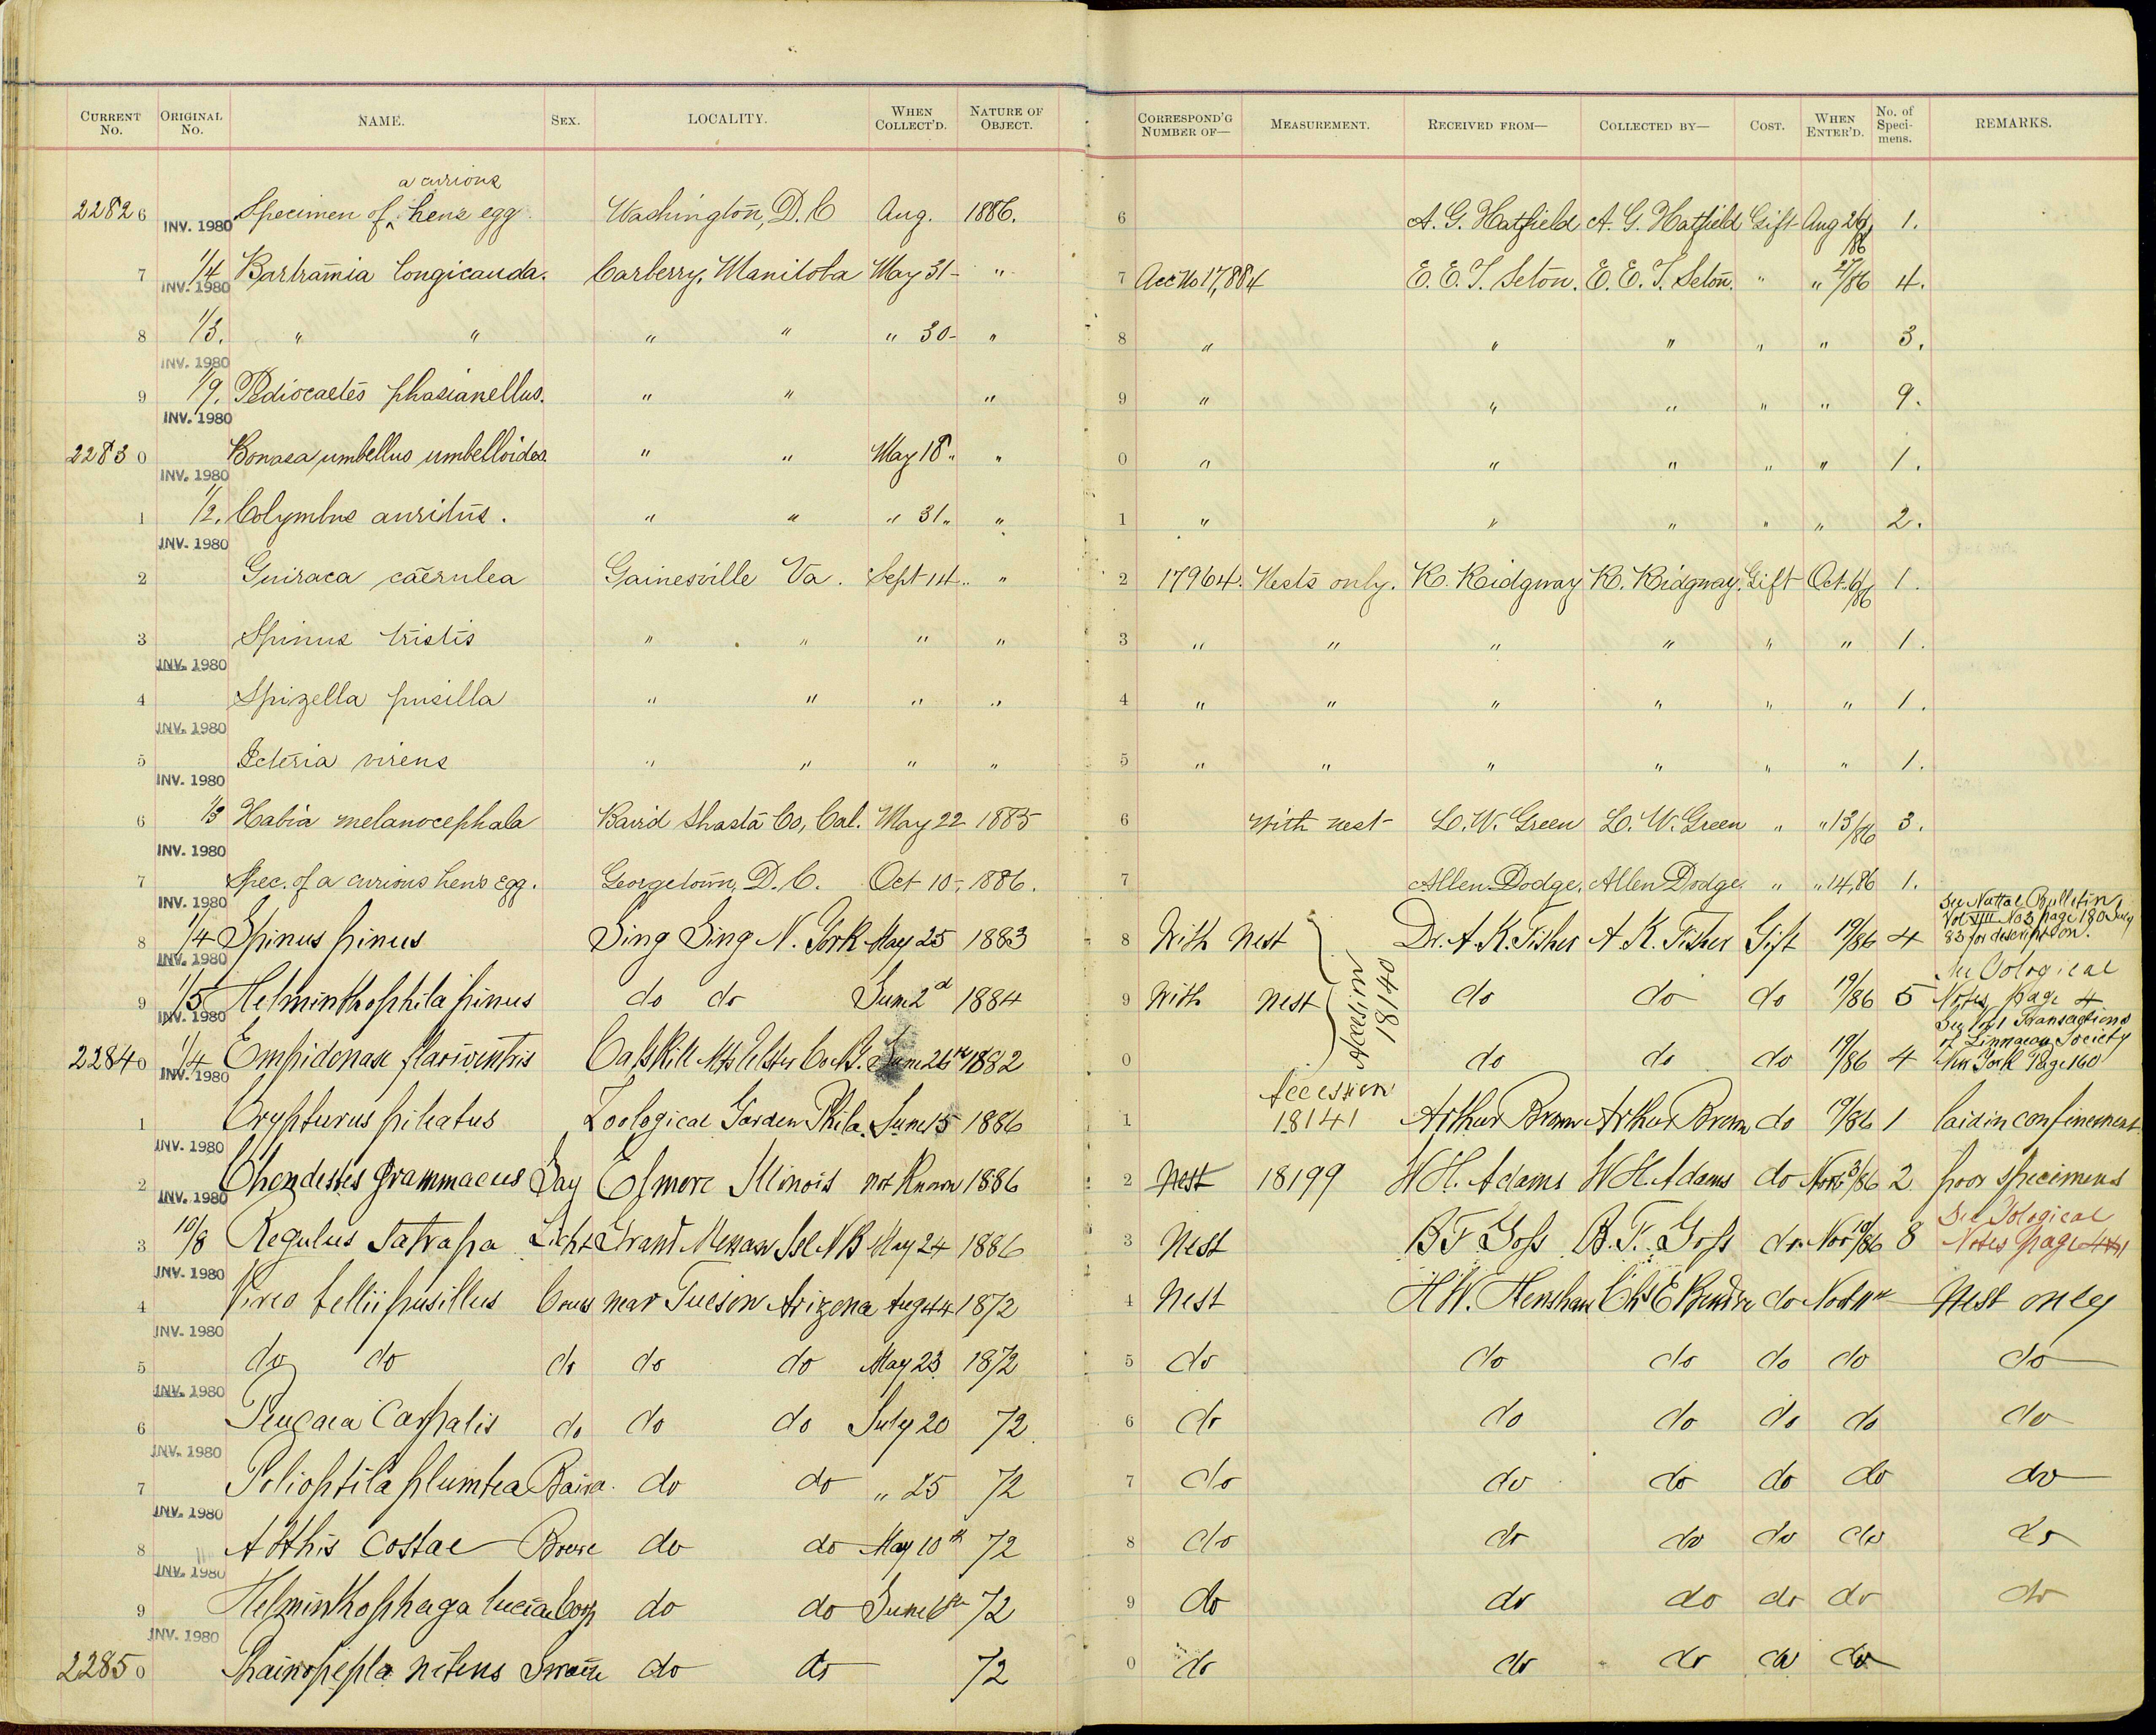 CURRENT No. ORIGINAL No. NAME. SEX. LOCALITY. WHEN COLLECT'D. NATURE OF OBJECT. CORRESPOND'G NUMBER OF— MEASUREMENT. RECEIVED FROM— COLLECTED BY— COST. WHEN ENTER'D. No. of Specimens. REMARKS.
a curious
22826 INV. 1980 Specimen of ^ hens egg. Washington, D.C Aug. 1886. 6 A. G. Hatfield A. G. Hatfield Gift Aug 26/86 1.
7 1/4 INV. 1980 Bartramia longicauda. Carberry, Manitoba May 31- " 7 Acc No 17,884 E. E. T. Seton. E. E. T. Seton. " " 27/86 4.
8 1/3. INV. 1980 " " " " " 30- " 8 " " " " " 3.
9 1/9. INV. 1980 Pediocaetes phasianellus. " " " 9 " " " " " 9.
22830 INV. 1980 Bonasa umbellus umbelloides. " " May 18 " " 0 " " " " " 1.
1 1/2. INV. 1980 Colymbus auritus. " " " 31 " " 1 " " " " " 2.
2 Guiraca caerulea Gainesville Va. Sept 14 " " 2 17964. Nests only. R. Ridgway R. Ridgway. Gift Oct. 6/86 1.
3 INV. 1980 Spinus tristis " " " " 3 " " " " " " 1.
4 INV. 1980 Spizella pusilla " " " " 4 " " " " " " 1.
5 INV. 1980 Icteria virens " " " " 5 " " " " " " 1.
6 1/3 INV. 1980 Habia melanocephala Baird Shasta Co, Cal. May 22 1885 6 with nest L. W. Green L. W. Green " " 13/86 3.
7 INV. 1980 Spec. of a curious hen's egg. Georgetown, D. C. Oct 10-, 1886. 7 Allen Dodge. Allen Dodge. " " 14,86 1.
8 1/4 INV. 1980 Spinus pinus Sing Sing N. York May 25 1883 8 With Nest Dr. A. K. Fisher A. K. Fisher Gift 19/86 4 See Nuttal Bulletin, Vol VIII No 3 page 180 July 83 for description.
9 1/5 INV. 1980 Helminthophila pinus do do June 2d 1884 9 With Nest Accession 18140 do do do 19/86 5 See Oological Notes page 4
22840 1/4 INV. 1980 Empidonax flaviventris Catskill Mts Ulster Co N.Y. June 26 1882 0 do do do 19/86 4 See Vol 1 Transactions of Linnaean Society New York Page 160
1 INV. 1980 Crypturus pileatus Zoological Garden Phila. June 15 1886 1 Accession 18141 Arthur Brown Arthur Brown do 19/86 1 laid in confinement
2 INV. 1980 Chondestes grammacus Say Elmore Illinois not Known 1886 2 Nest 18199 W H. Adams W H. Adams do Nov 3/86 2 poor specimens
3 10/8 INV. 1980 Regulus Satrapa Licht Grand Menan Isl N B May 24 1886 3 Nest B F Goss B. F. Goss do Nov 10/86 8 See Oological Notes page
4 INV. 1980 Vireo bellii pusillus Coues near Tucson Arizona Aug 1872 4 Nest H W. Henshaw Chs E Bendire do Nov 11th Nest only
5 INV. 1980 do do do do do May 23 1872 5 do do do do do do
6 INV. 1980 Peucaea Carpalis do do do July 20 72 6 do do do do do do
7 INV. 1980 Polioptila plumbea Baird. do do " 25 72 7 do do do do do do
8 INV. 1980 Atthis Costae do do May 10th 72 8 do do do do do do
9 INV. 1980 Helminthophaga luciae Coop do do June 6th 72 9 do do do do do do
22850 Phainopepla nitens Swains do do 72 0 do do do do do